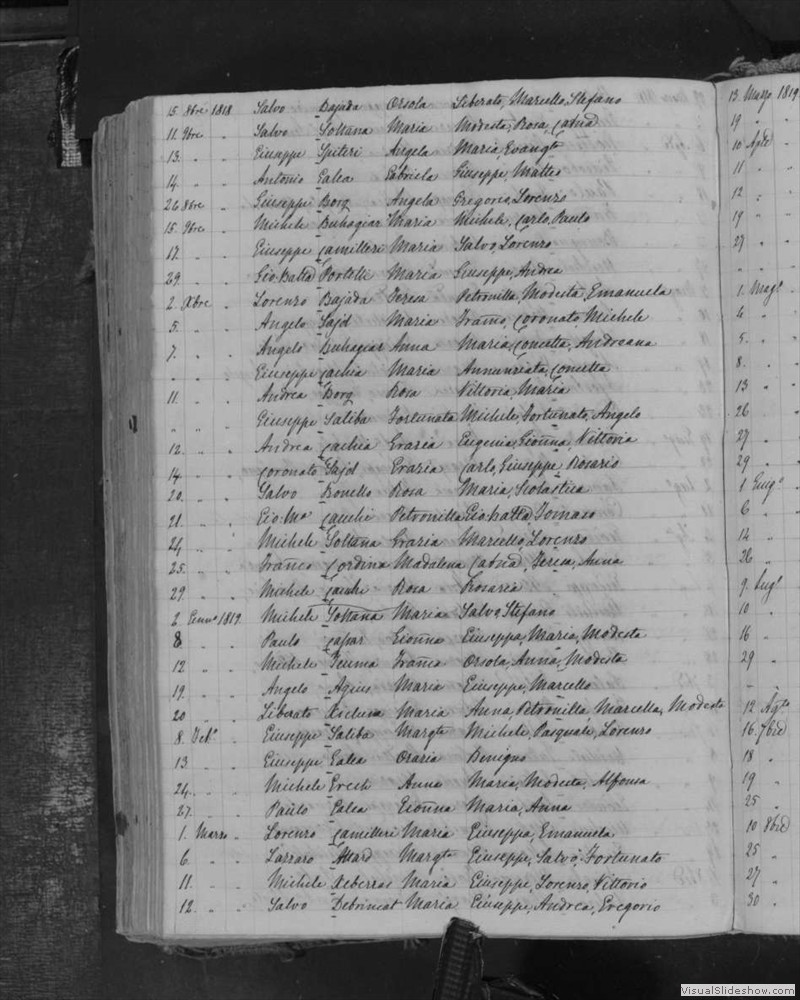 15. 8bre 1818 Salvo Bajada Orsola Liberato, Marcello, Stefano
11. 9bre " Salvo Soltana Maria Modesta, Rosa, Catna
13. " " Giuseppe Spiteri Angela Maria, Evangta
14. " " Antonio Galea Gabriela Giuseppe, Matteo
26 8bre " Giuseppe Borg Angela Gregorio, Lorenzo
15. 9bre " Michele Buhagiar Maria Michele, Carlo, Paulo
17. " " Giuseppe Camilleri Maria Salvo, Lorenzo
29. " " Gio Batta Portelli Maria Giuseppe, Andrea
2. Xbre " Lorenzo Bajada Teresa Petronilla, Modesta, Emanuela
5. " " Angelo Sajd Maria Franco, Coronato, Michele
7. " " Angelo Buhagiar Anna Maria, Concetta, Andreana
" " " Giuseppe Cachia Maria Annunziata, Concetta
11. " " Andrea Borg Rosa Vittoria, Maria
" " " Giuseppe Saliba Fortunata Michele, Fortunato, Angelo
12. " " Andrea Cachia Grazia Eugenia, Gionna, Vittoria
14. " " Coronato Sajd Grazia Carlo, Giuseppe, Rosario
20. " " Salvo Bonello Rosa Maria, Scolastica
21. " " Gio: Ma Cauchi Petronilla Gio batta, Tomaso
24 " " Michele Soltana Grazia Marcello, Lorenzo
25. " " Franco Cordina Madalena Catna, Teresa, Anna
29. " " Michele Cauchi Rosa Rosaria
2. Genno 1819 Michele Soltana Maria Salvo, Stefano
8 " " Paulo Caspar Gionna Giuseppa, Maria, Modesta
12 " " Michele Teuma Franca Orsola, Anna, Modesta
19. " " Angelo Agius Maria Giuseppe, Marcello
20 " " Liberato Xicluna Maria Anna, Petronilla, Marcella, Modesta
8. Febo " Giuseppe Saliba Margta Michele, Pasquale, Lorenzo
13 " " Giuseppe Galea Oraria Benigno
24. " " Michele Grech Anna Maria, Modesta, Alfonsa
27. " " Paulo Galea Gionna Maria, Anna
1. Marzo " Lorenzo Camilleri Maria Giuseppa, Emanuela
6. " " Lazzaro Attard Margta Giuseppe, Salvo, Fortunato
11. " " Michele Xeberras Maria Giuseppe, Lorenzo, Vittorio
12. " " Salvo Debrincat Maria Giuseppe, Andrea, Gregorio
13. Marzo 1819
19 " "
10 Aple "
11 " "
12 " "
19 " "
27 " "
" " "
1. Magg "
4 " "
5. " "
8. " "
13 " "
26 " "
27 " "
29 " "
1 Giugo "
6 " "
14 " "
26 " "
9. Lugl "
10 " "
16 " "
29 " "
" "
12 Agto
16. 7bre
18 "
19 "
25 "
10 8bre
25 "
27 "
30 "
VisualSlideshow.com